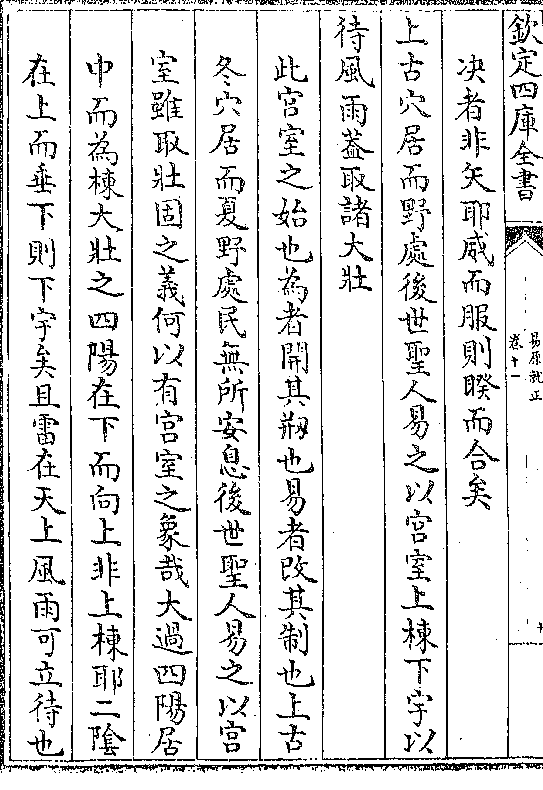 欽定四庫全書
易原就正
卷十一
決者非矢耶威而服則睽而合矣
上古穴居而野處後世聖人易之以宮室上棟下宇以
待風雨蓋取諸大壯
此宮室之始也為者開其剏也易者改其制也上古
冬穴居而夏野處民無所安息後世聖人易之以宮
室雖取壯固之義何以有宮室之象哉大過四陽居
中而為棟大壯之四陽在下而向上非上棟耶二陰
在上而垂下則下宇矣且雷在天上風雨可立待也